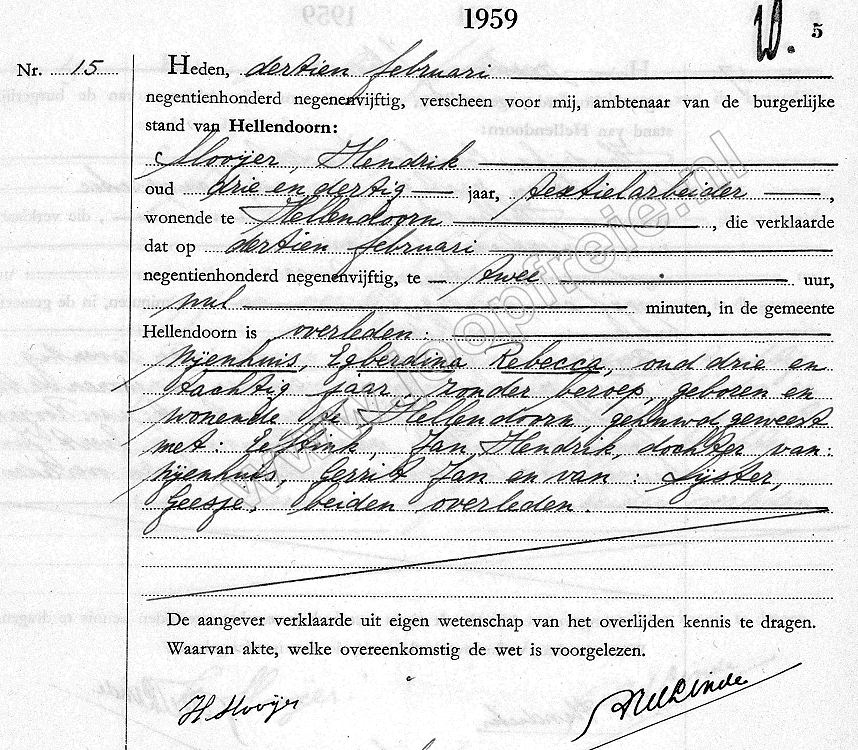 1959
10. 5
Nr. 15 Heden, dertien februari
negentienhonderd negenenvijftig, verscheen voor mij, ambtenaar van de burgerlijke
stand van Hellendoorn:
Mooijer, Hendrik
oud drie en dertig jaar, textielarbeider,
wonende te Hellendoorn, die verklaarde
dat op dertien februari
negentienhonderd negenenvijftig, te twee uur,
nul minuten, in de gemeente
Hellendoorn is overleden:
Nijenhuis, Egberdina Rebecca, oud drie en
tachtig jaar, zonder beroep, geboren en
wonende te Hellendoorn, gehuwd geweest
met: Jan Hendrik, dochter van:
Nijenhuis, Gerrit Jan en van: Lijster,
Geesje, beiden overleden
De aangever verklaarde uit eigen wetenschap van het overlijden kennis te dragen.
Waarvan akte, welke overeenkomstig de wet is voorgelezen.
H Mooijer
www.loopfreie.nl